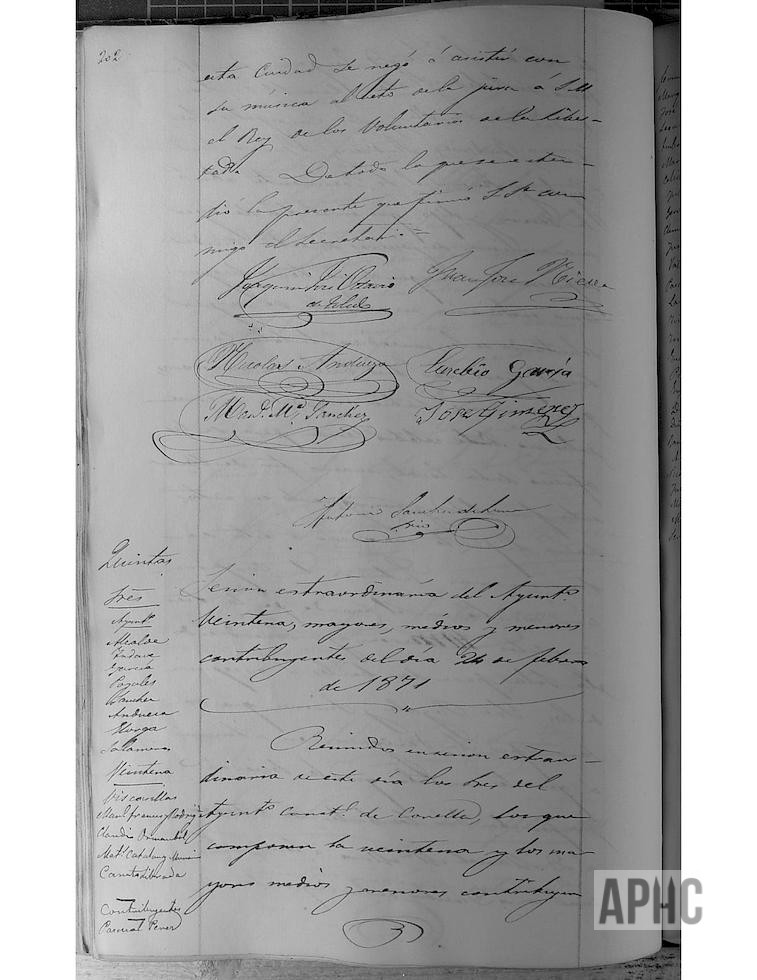 202
esta Ciudad se negó á asistir con
su música al acto de la jura á S.M.
el Rey de los Voluntarios de la Liber-
tad. De todo lo que se esten-
dió la presente que firmó S. Sa. con
migo el Secretario.=
Joaquin José Octavio
de Toledo
Juan José
Nicolas Andueza
Eusebio García
Man.l M.a Sanchez
José Gimenez
Antonio Sanchez de
Quintas
Sres
Ayunt.o
Alcalde
Garcia
Sanchez
Andueza
Veintena
Claudio
Mat.s Catalan
Contribuyentes
Pascual
Sesion estraordinaria del Ayunt.o
Veintena, mayores, medios y menores
contribuyentes del día 24 de febrero
de 1871
Reunidos en sesion estraor-
dinaria de este día los Sres del
Ayunt.o Const.l de Corella, los que
componen la veintena y los ma-
yores medios y menores contribuyen
APHC